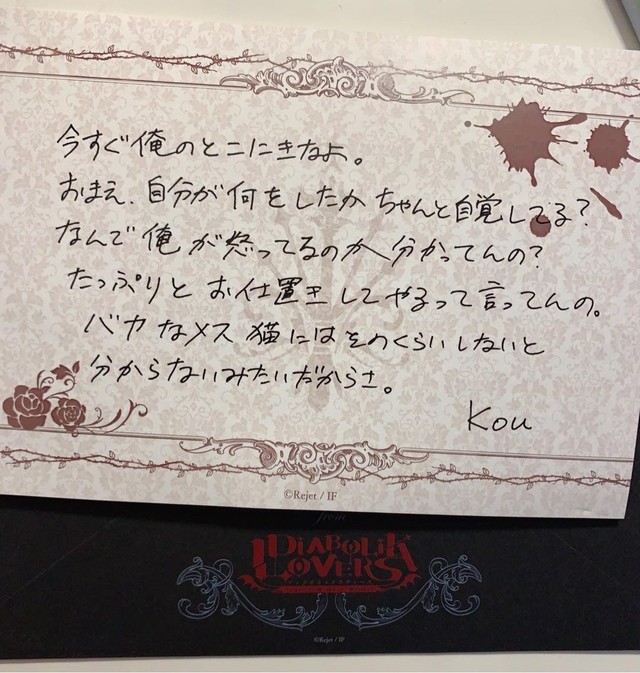 今すぐ俺のとこにきなよ。
おまえ、自分が何をしたか ちゃんと自覚してる?
なんで俺が怒ってるのか分かってんの?
たっぷりと お仕置きしてやるって言ってんの。
バカなメス猫にはそのくらいしないと
分からないみたいだからさ。
Kou
©Rejet / IF
from
DIABOLIK
LOVERS
©Rejet / IF